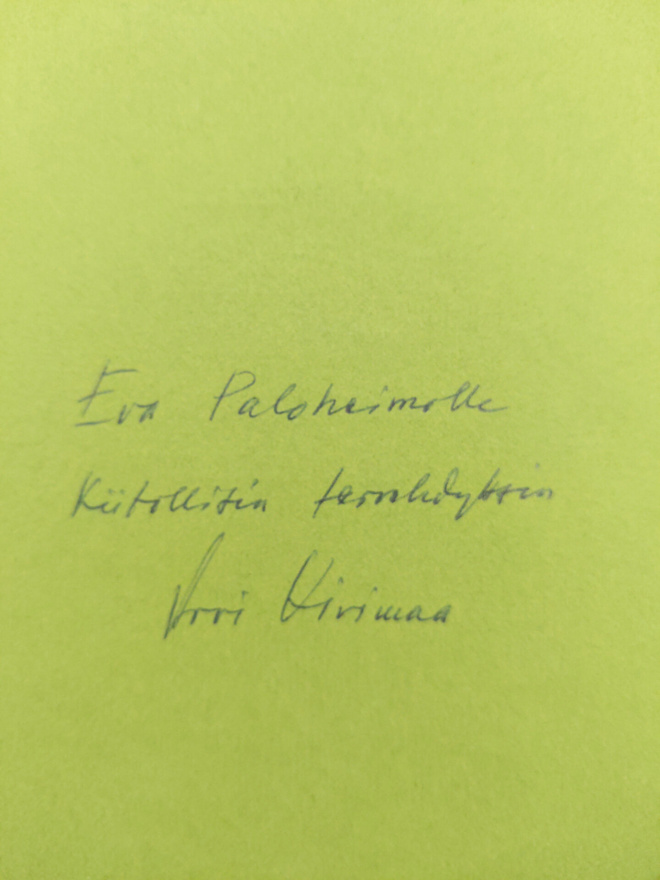 Eva Paloheimolle
Kiitollisin tervehdyksin
Arvi Kivimaa